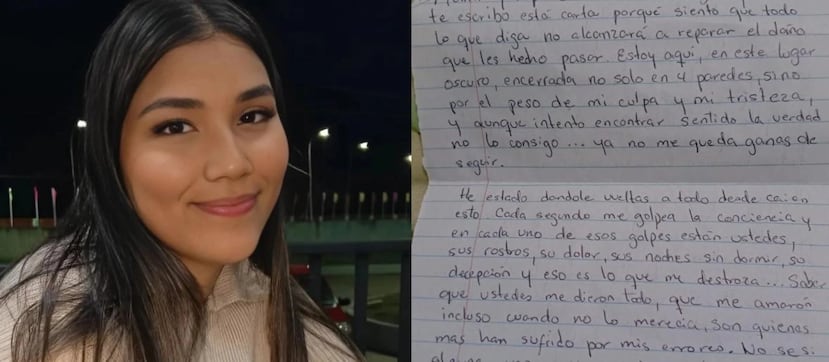 te escribo está carta porqué siento que todo
lo que diga no alcanzará a reparar el daño
que les hecho pasar. Estoy aquí, en este lugar
oscuro, encerrada no solo en 4 paredes, sino
por el peso de mi culpa y mi tristeza,
y aunque intento encontrar sentido la verdad
no lo consigo... ya no me queda ganas de
seguir.
He estado dandole vueltas a todo desde cai en
esto Cada segundo me golpea la conciencia y
en cada uno de esos golpes están ustedes,
sus rostros, su dolor, sus noches sin dormir, su
decepción y eso es lo que me destroza... Saber
que ustedes me dieron todo, que me amarón
incluso cuando no lo merecía, son quienes
mas han sufrido por mis errores. No se si